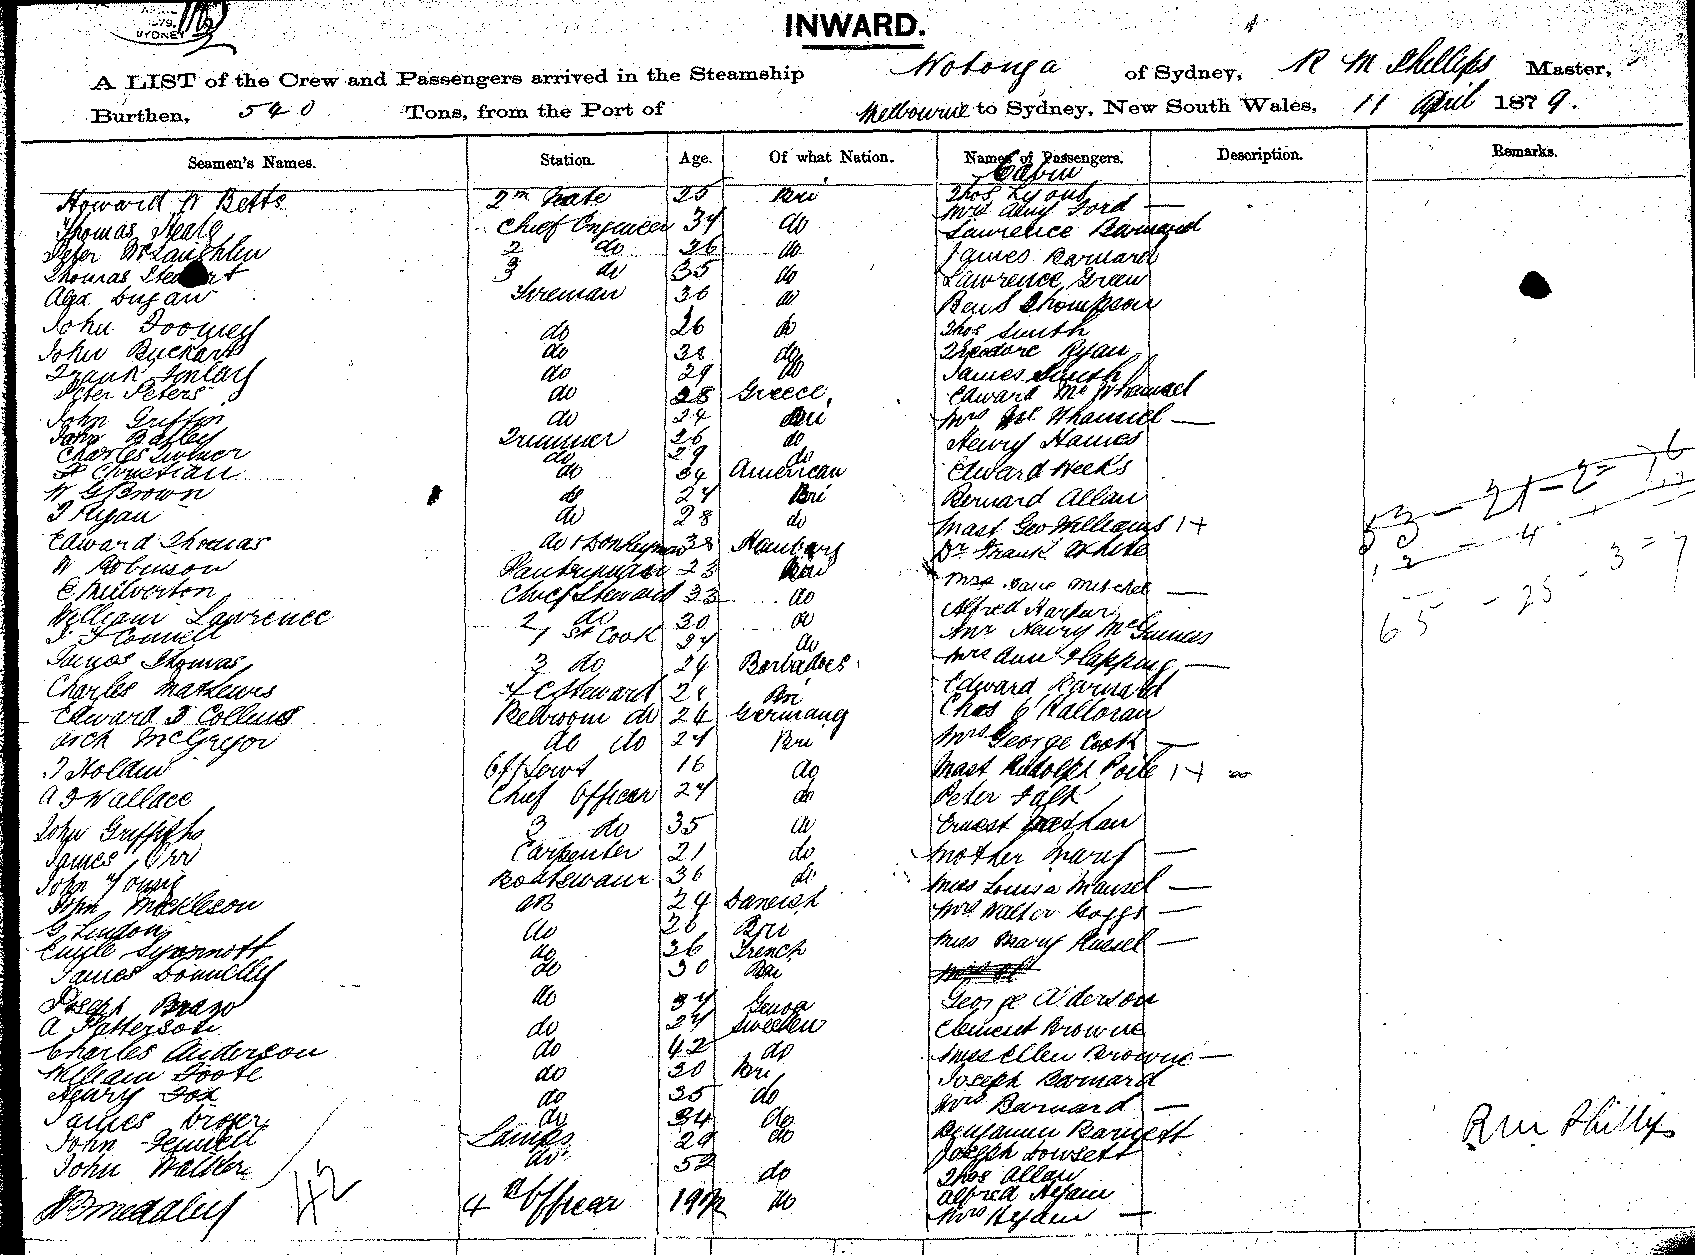 SYDNEY
INWARD.
A LIST of the Crew and Passengers arrived in the Steamship Wotonga of Sydney, R M Phillips Master,
Burthen, 540 Tons, from the Port of Melbourne to Sydney, New South Wales, 11 April 1879.
Seamen's Names. Station. Age. Of what Nation. Names of Passengers. Description. Remarks.
Cabin
Howard W Betts 2nd Mate 25 Bri Thos Lyons
Mrs Amy Ford —
Thomas Neale Chief Engineer 34 do Lawrence Barnard
Peter McLaughlin 2 do 26 do James Barnard
Thomas Stewart 3 do 35 do Lawrence Green
Alex Dugan Fireman 36 do Benj Thompson
John Toomey do 26 do Thos Smith
John do 38 do Theodore Ryan
Frank Finlay do 29 do James Smith
Peter Peters do 28 Greece, Edward Mc Whannel
John Griffin do 24 Bri Mrs Whannel —
Bailey Trimmer 26 do Henry Haines
Charles do 29 do
Christian do 34 American Edward Weeks
W G Brown do 24 Bri Bernard Allan
T Ryan do 28 do Mast Geo Williams 1+
Edward Thomas do & Donkeyman 38 Hamburg Dr Frank White
W Robinson Pantryman 23 Bri Mrs Jane Mitchel —
C Milverton Chief Steward 33 do Alfred Harper
William Lawrence 2 do 30 do Henry McGuiness
Connell 1st Cook 34 do
James Thomas 3 do 24 Barbadoes Mrs Ann Flapping —
Charles Mathews F C Steward 24 Bri Edward Barnard
Edward T Collins Bedroom do 24 Germany Chas O Halloran
Arch McGregor do do 24 Bri Mrs George Cook —
T Holden Off Servt 16 do Mast Rudolph Poile 1+
A T Wallace Chief Officer 24 do Peter Falk
John Griffiths 3 do 35 do Ernest Nathan
James Orr Carpenter 21 do Mother Mary —
John Young Boatswain 36 do Miss Louisa Mansel —
John Mickleson AB 24 Danish Mrs Walter Goggs —
G Lindon do 26 Bri Miss Mary Russel —
Synnott do 36 French
James Donnelly do 30 Bri
Joseph Bravo do 34 Genoa George Alderson
A Patterson do 24 Sweeden Clement Browne
Charles Anderson do 42 do Miss Ellen Browne —
William Foote do 30 Bri Joseph Barnard
Henry Fox do 35 do Mrs Barnard —
James do 34 do Benjamin Barnett
John Fennell Lamps 29 do Joseph Dowsett
John do 52 do Thos Allan
Alfred Hyam
J Bmeadaley 4th Officer 19 do Mrs Hyam —
42
53 — 21 — 2 = 76
12 — 4
65 — 25 — 3 = 7
R M Phillips